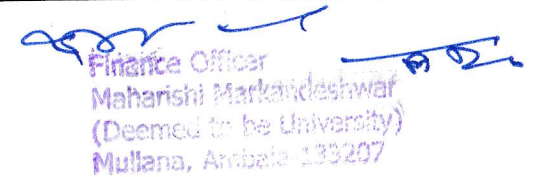 Finance Officer
Maharishi Markandeshwar
(Deemed to be University)
Mullana, Ambala-133207